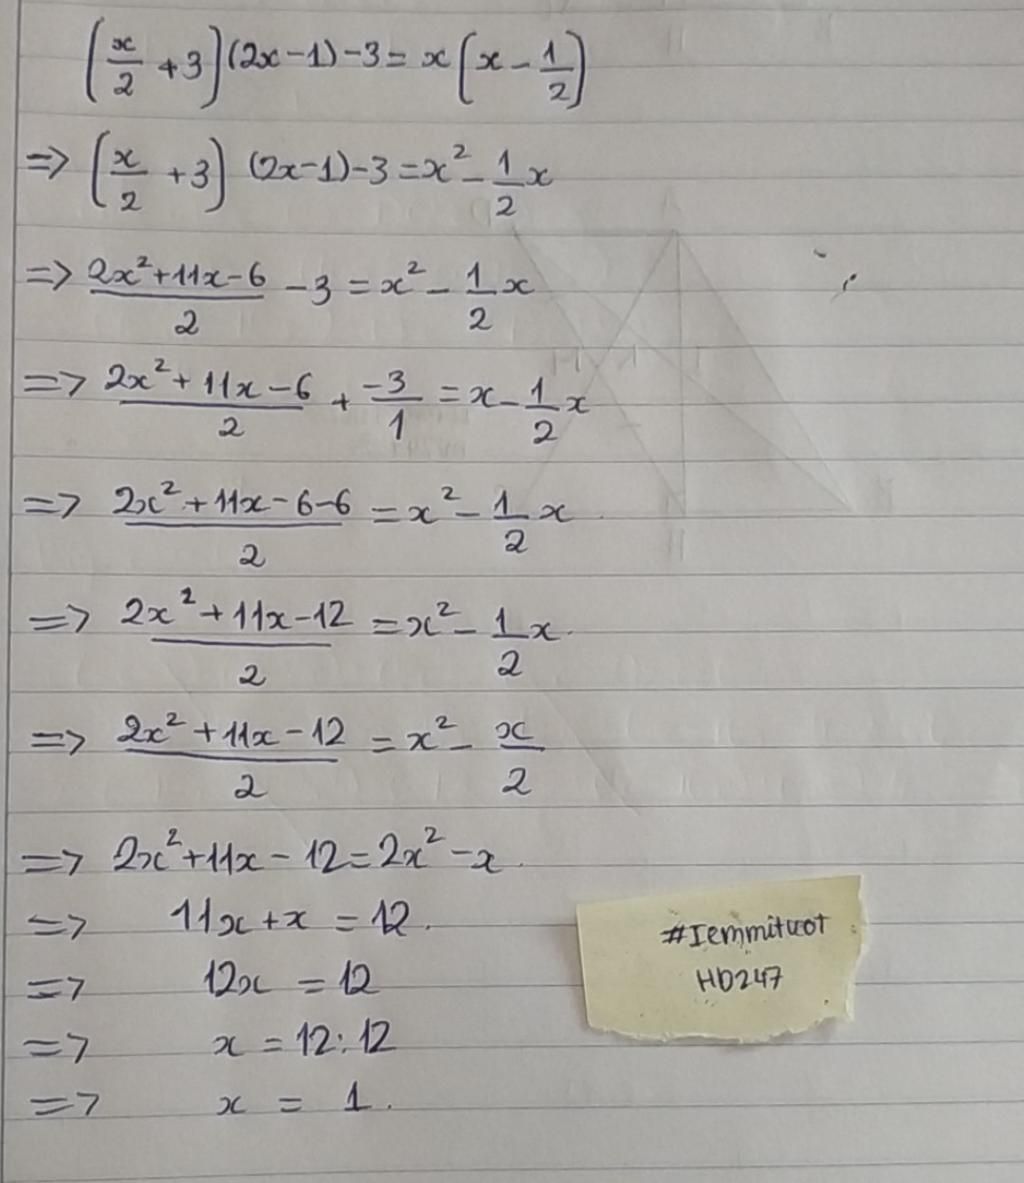 (x/2 + 3)(2x-1)-3 = x(x - 1/2)
=> (x/2 + 3) (2x-1)-3 = x² - 1/2 x
=> (2x²+11x-6)/2 - 3 = x² - 1/2 x
=> (2x²+11x-6)/2 + -3/1 = x - 1/2 x
=> (2x²+11x-6-6)/2 = x² - 1/2 x
=> (2x²+11x-12)/2 = x² - 1/2 x.
=> (2x²+11x-12)/2 = x² - x/2
=> 2x²+11x-12 = 2x²-x.
=> 11x+x = 12.
=> 12x = 12
=> x = 12:12
=> x = 1.
#Iemmituot
HD247